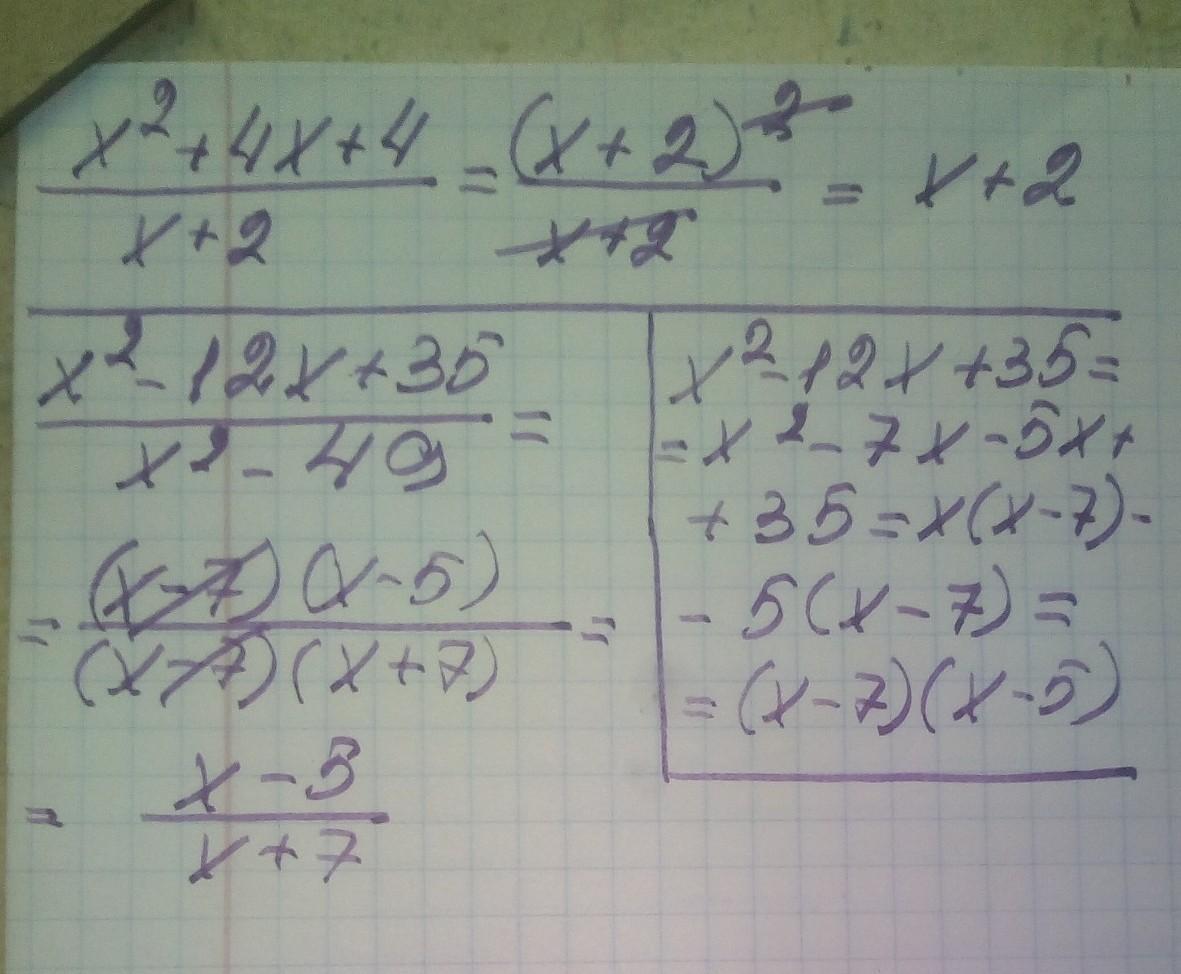 (x²+4x+4)/(x+2) = (x+2)²/(x+2) = x+2
(x²-12x+35)/(x²-49) =
= ((x-7)(x-5))/((x-7)(x+7)) =
= (x-5)/(x+7)
x²-12x+35=
=x²-7x-5x+
+35=x(x-7)-
-5(x-7)=
=(x-7)(x-5)